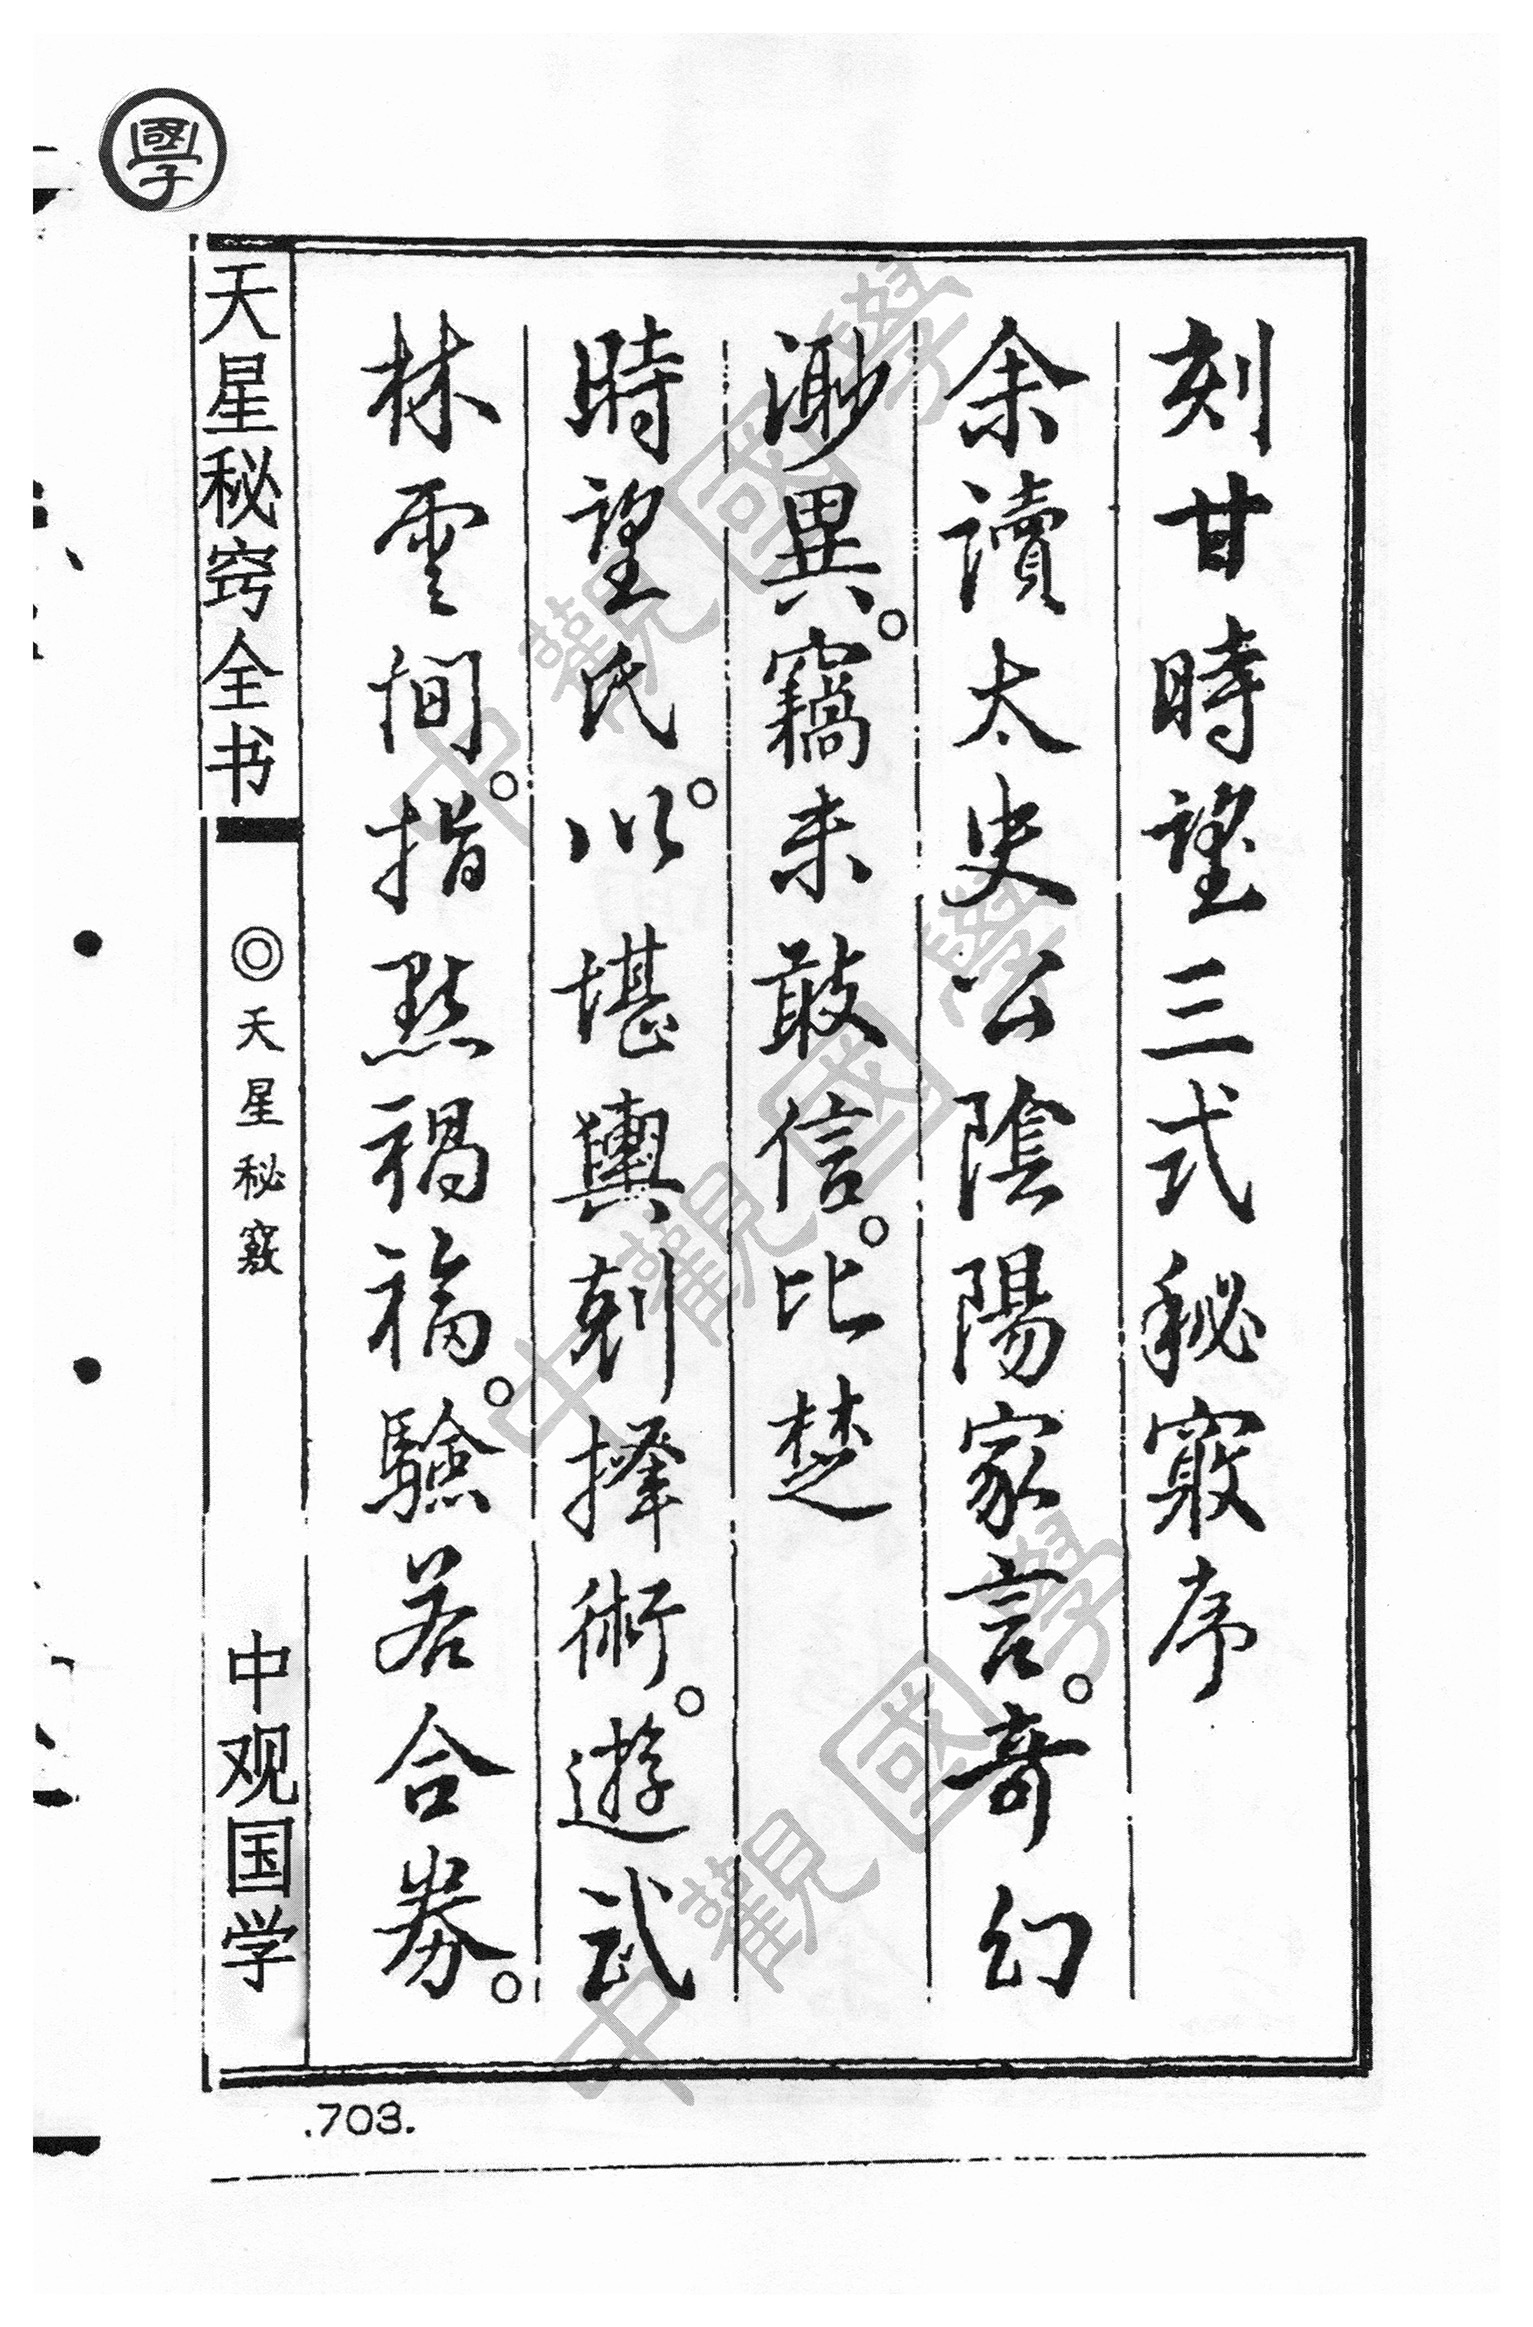 刻甘時望三式秘竅序
余讀太史公陰陽家言。奇幻
渺異。竊未敢信。比楚
時望氏。以堪輿剋擇術。遊武
林雲間。指點禍福。驗若合券。
天星秘窍全书
◎天星秘竅
中观国学
.703.
國學
中觀國學
中觀國學
中觀國學